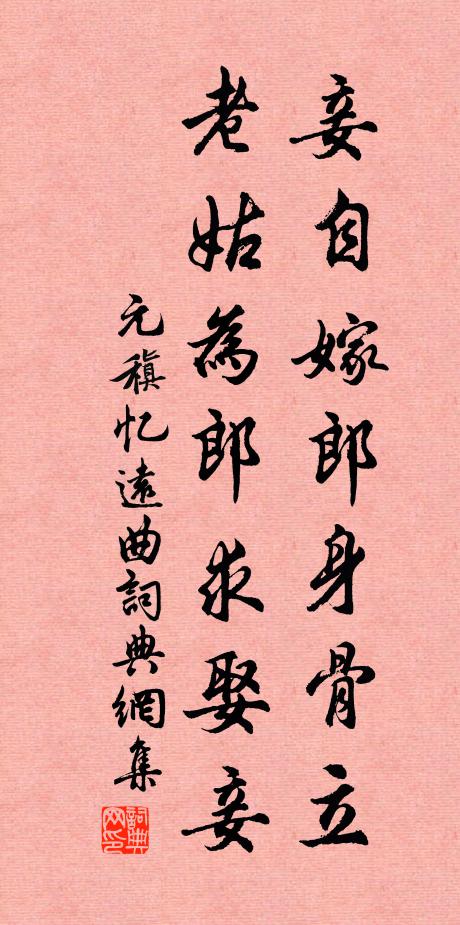 妾自嫁郎身骨立
老姑為郎求娶妾
元稹忆遠曲詞典網集
詞典網印